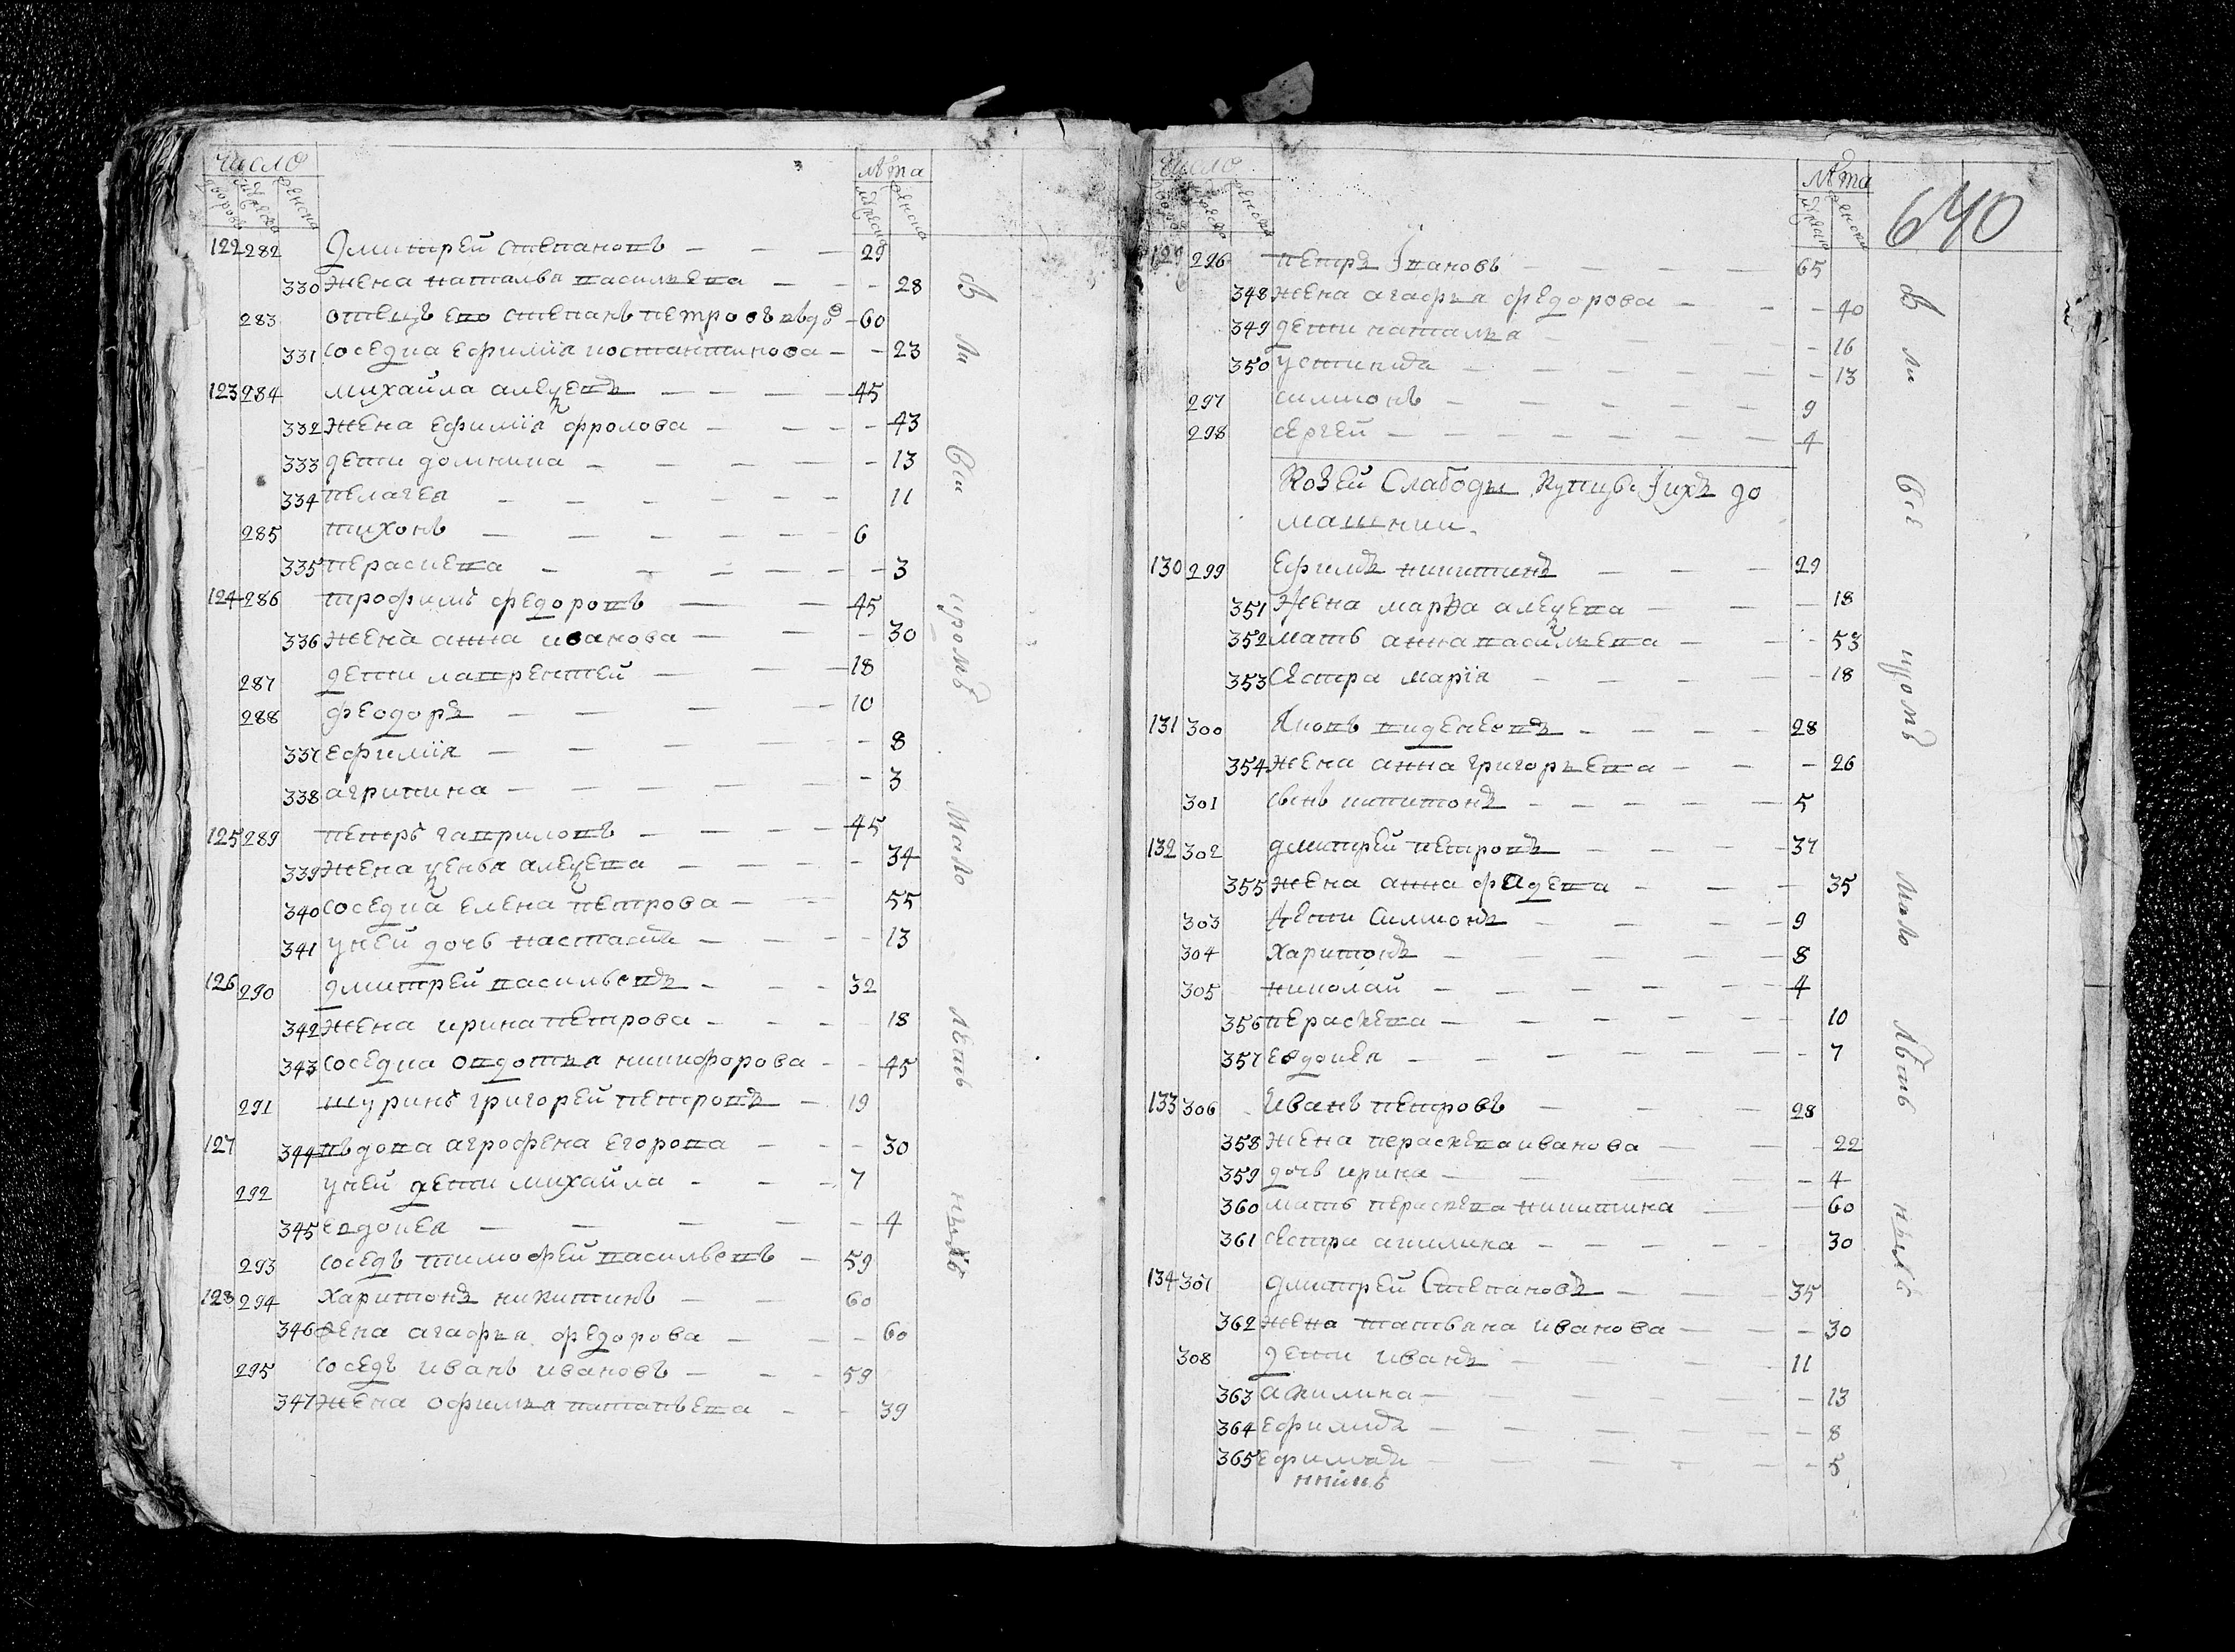 число
дворовъ мужеска женска
лѣта
мужеска женска
122 282 Дмитрей степановъ 29
330 жена наталья васильева 28
283 отецъ ево степанъ петровъ вдо 60
331 соседка ефимия костантинова 23
123 284 михайла алеѯевъ 45
332 жена ефимия фролова 43
333 дети домникия 13
334 пелагея 11
285 тихонъ 6
335 пераскева 3
124 286 трофимъ федоровъ 45
336 жена анна иванова 30
287 дети лаврентей 18
288 феодоръ 10
337 ефимия 8
338 агрипина 3
125 289 петръ гавриловъ 45
339 жена ѯенья алеѯева 34
340 соседка елена петрова 55
341 у ней дочь настасья 13
126 290 дмитрей васильевъ 32
342 жена ирина петрова 18
343 соседка овдотья никифорова 45
291 шуринъ григорей петровъ 19
127 344 вдова агрофена егорова 30
292 у ней дети михайла 7
345 евдокея 4
293 соседъ тимофей васильевъ 59
128 294 харитонъ никитинъ 60
346 жена агафья федорова 60
295 соседъ иванъ ивановъ 59
347 жена офимья потапьева 39
Мало
летъ
число
лѣта
640
129 296 петръ Iвановъ 65
348 жена агафья федорова 40
349 дети наталья 16
350 устинья 13
297 симионъ 9
298 сергей 4
Козьей Слабоды купцы Iихъ до
машнии
130 299 Ефимъ никитинъ 29
351 жена марѳа алеѯева 18
352 мать анна васильева 53
353 сестра мария 18
131 300 Яковъ виденеевъ 28
354 жена анна григорьева 26
301 сынъ капитонъ 5
132 302 дмитрей петровъ 37
355 жена анна фадеева 35
303 дети Симионъ 9
304 харитонъ 8
305 николай 4
356 пераскева 10
357 евдокея 7
133 306 Иванъ петровъ 28
358 жена пераскева иванова 22
359 дочь ирина 4
360 мать пераскева никитина 60
361 сестра акилина 30
134 307 дмитрей Степановъ 35
362 жена татьяна иванова 30
308 дети иванъ 11
363 акилина 13
364 ефимия 8
365 ефимия 5
мало
летъ